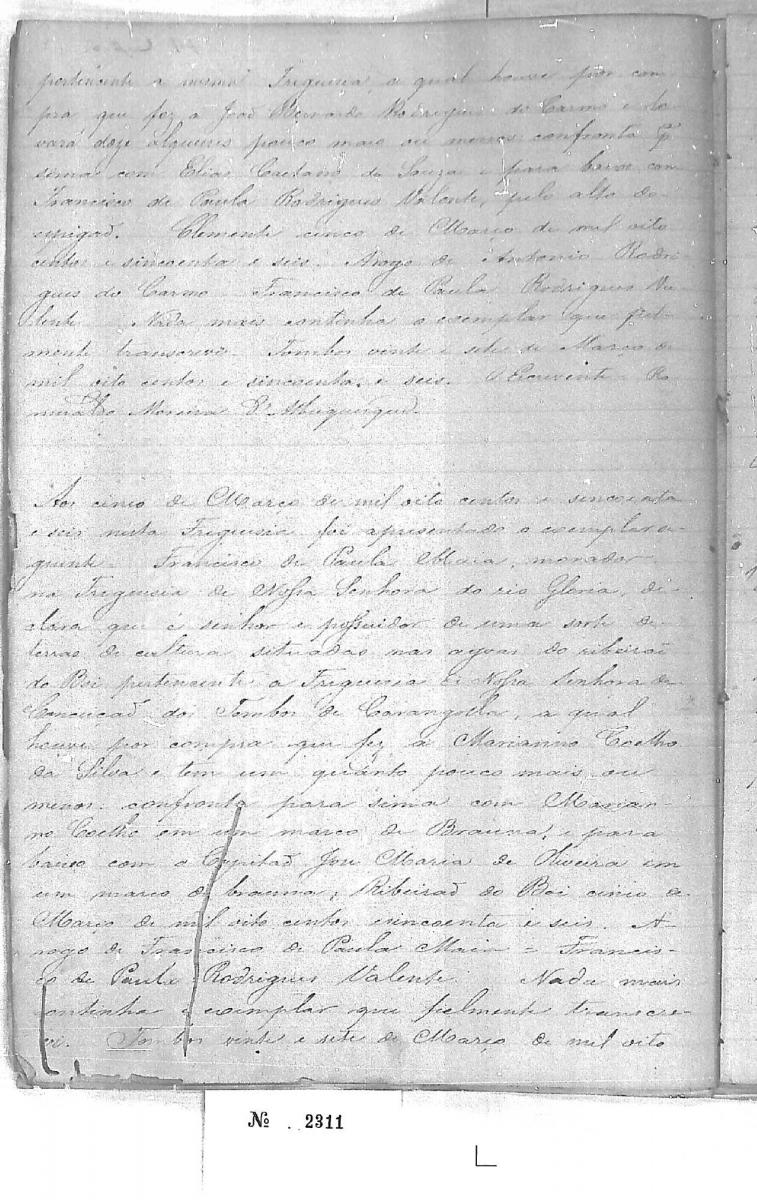 pertencente a mesma Freguesia, a qual houve por com-
pra que fez a João Bernardo Rodrigues do Carmo e le-
vará doze alqueires pouco mais ou menos confronta p
sima com Elias Caetano de Souza e para baixo com
Francisco de Paula Rodrigues Valente, pelo alto do
espigad. Clemente cinco de Março de mil oito
centos e sincoenta e seis. Arogo de Antonio Rodri-
gues do Carmo Francisco de Paula Rodrigues Va-
lente Nada mais continha o exemplar que fiel-
mente transcrevi. Tombos vinte e sete de Março de
mil oito centos e sincoenta e seis. O Escrevente Ro-
mualdo Moreira d'Albuquerque.
Aos cinco de Março de mil oito centos e sincoenta
e seis nesta Freguesia foi apresentado o exemplar se-
guinte Francisco de Paula Maia, morador
na Freguesia de Nossa Senhora do rio Gloria, de-
clara que é senhor e possuidor de uma sorte de
terras de cultura situadas nas agoas do ribeirão
do Boi pertencente a Freguesia de Nossa Senhora da
Conceicad dos Tombos de Carangolla, a qual
houve por compra que fez a Marianno Coelho
da Silva e tem um quanto pouco mais ou
menos confronta para sima com Marian-
no Coelho em um marco de Brauna, e para
baixo com o Capitad José Maria de Oliveira em
um marco de brauna, Ribeirad do Boi cinco de
Março de mil oito centos esincoenta e seis. A
rogo de Francisco de Paula Maia = Francis-
co de Paula Rodrigues Valente Nada mais
continha o exemplar que fielmente transcre-
vi. Tombos vinte e sete de Março de mil oito
№ 2311